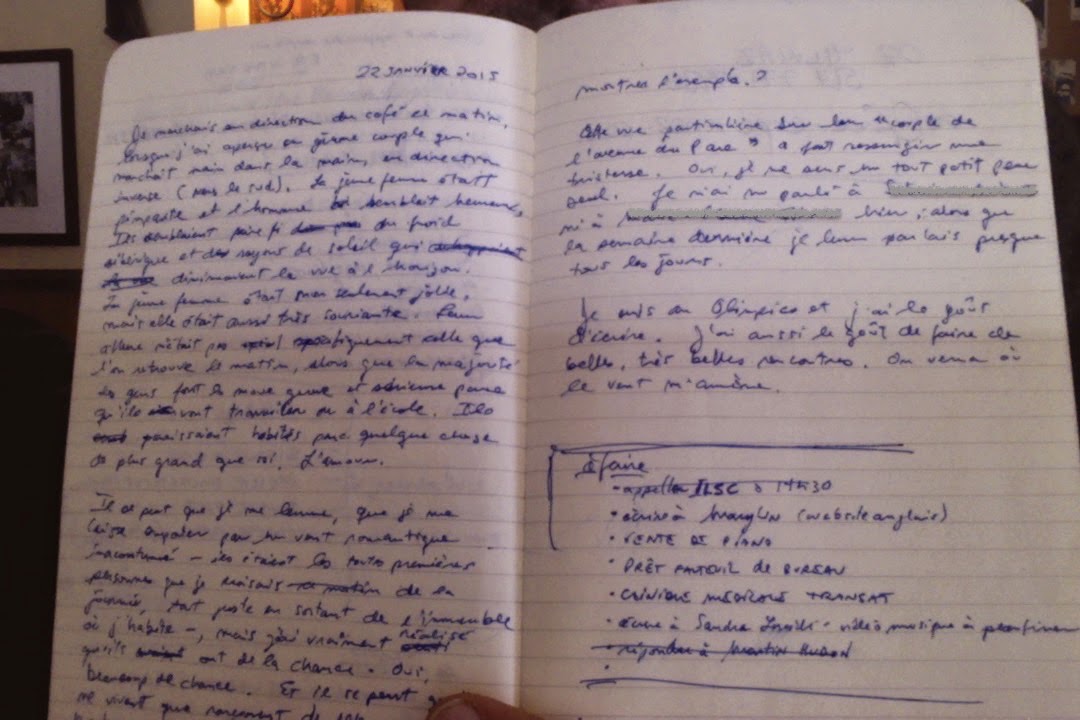 22 JANVIER 2015
Je marchais en direction du café ce matin,
lorsque j'ai aperçu un jeune couple qui
marchait main dans la main, en direction
inverse (vers le sud). La jeune femme était
pimpante et l'homme semblait heureux.
Ils semblaient faire fi du froid
sibérique et des rayons de soleil qui
diminuaient la vue à l'horizon.
La jeune femme était non seulement jolie,
mais elle était aussi très souriante. Leur
allure n'était pas spécifiquement celle que
l'on retrouve le matin, alors que la majorité
des gens font la move gueule et parce
qu'ils vont travailler ou à l'école. Ils
paraissaient habités par quelque chose
de plus grand que soi. L'amour.
Il se peut que je me leurre, que je me
laisse emporter par un vent romantique
inaccoutumé – ils étaient les toutes premières
personnes que je croisais de la
journée, tout juste en sortant de l'immeuble
où j'habite –, mais j'ai vraiment réalisé
qu'ils ont de la chance. Oui,
beaucoup de chance. Et il se peut
ne vivant que rarement de
montrer l'exemple.?
Cette vue particulière sur le "couple de
l'avenue du Parc" a fait ressurgir une
tristesse. Oui, je me sens un tout petit peu
seul. Je n'ai ni parlé à
ni à hier, alors que
la semaine dernière je leur parlais presque
tous les jours.
Je suis au Olimpico et j'ai le goût
d'écrire. J'ai aussi le goût de faire de
belles, très belles rencontres. On verra où
le vent m'amène.
À faire
• appeller ILSC à 14h30
• écrire à (website anglais)
• VENTE DE PIANO
• PRÊT FAUTEUIL DE BUREAU
• CLINIQUE MÉDICALE TRANSAT
• écrire à Sandra - vidéo musique à
• répondre à Martin Hudon
•